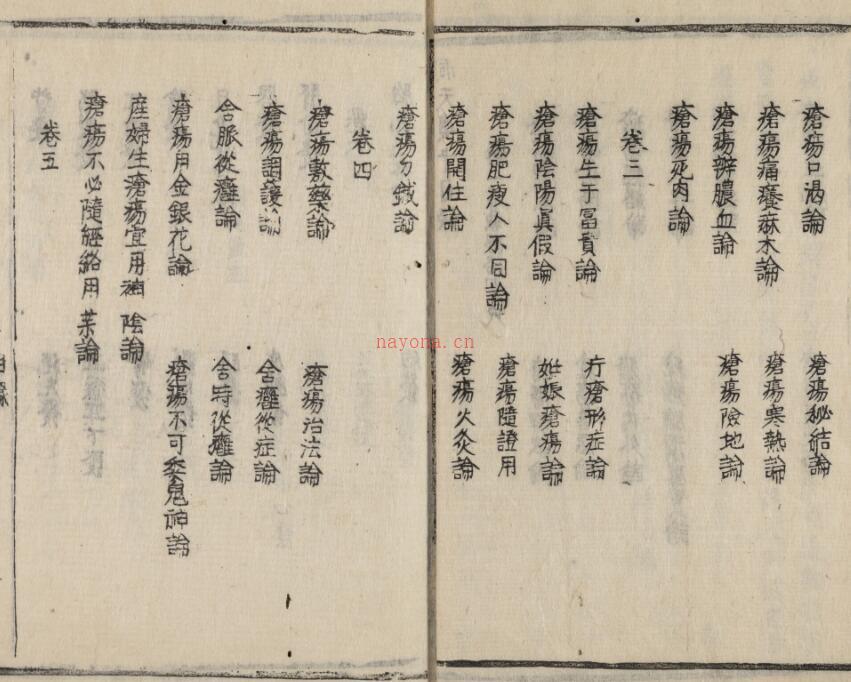 瘡瘍口渴論 瘡瘍秘結論
瘡瘍痛癢麻木論 瘡瘍寒熱論
瘡瘍辨膿血論 瘡瘍險地論
瘡瘍死肉論
卷三
瘡瘍生于冨貴論 疔瘡形症論
瘡瘍陰陽眞假論 姙娠瘡瘍論
瘡瘍肥瘦人不同論 瘡瘍隨證用
瘡瘍開住論 瘡瘍火灸論
瘡瘍刀鍼論
卷四
瘡瘍敷藥論 瘡瘍治法論
瘡瘍調護論 舍癰從症論
舍脈從癰論 舍時從癰論
瘡瘍用金銀花論 瘡瘍不可委鬼神論
産婦生瘡瘍宜用補陰論
瘡瘍不必隨經絡用藥論
卷五
nayona.cn